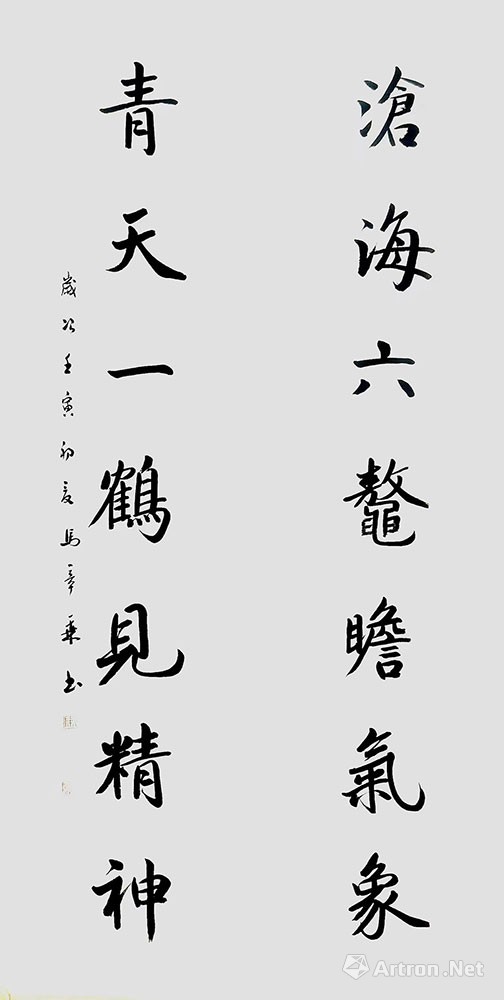 滄海六鼇瞻氣象
青天一鶴見精神
歲次壬寅初夏馬章乘書
Artron.Net